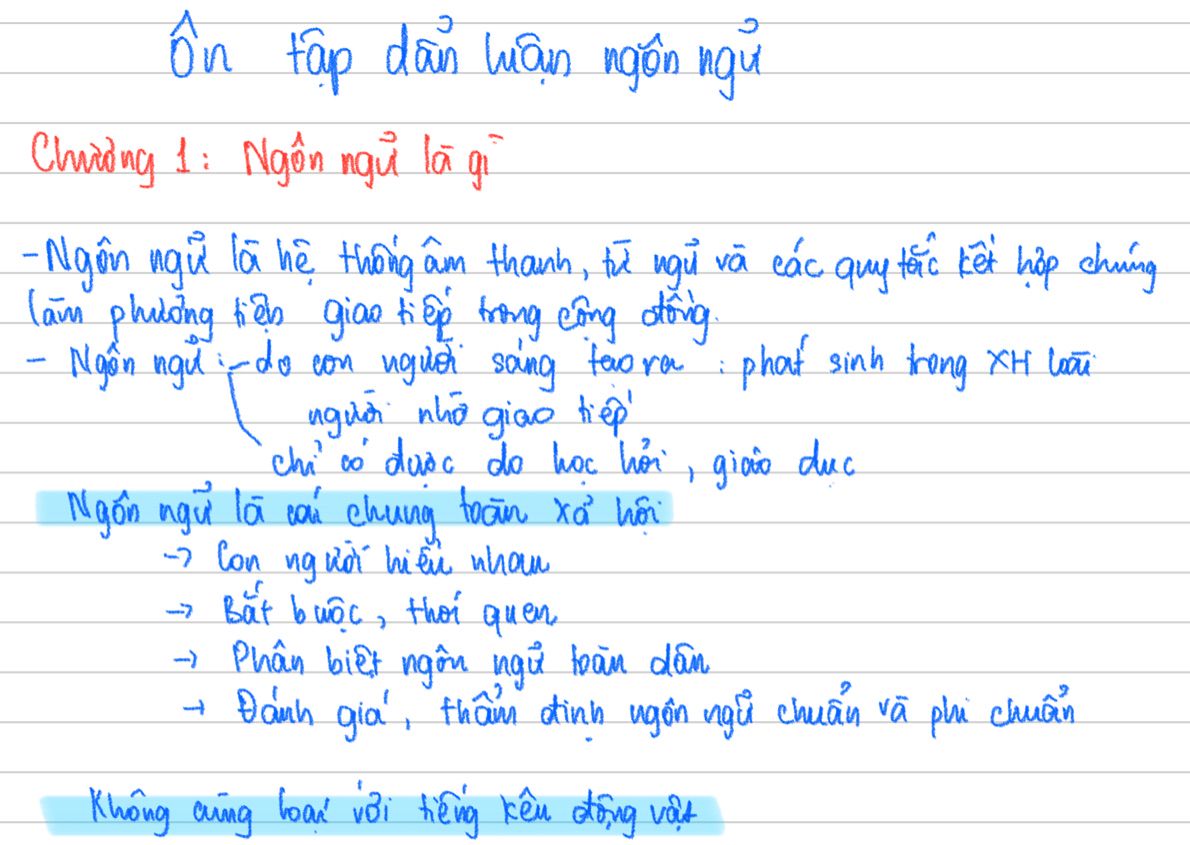 Ôn tập dẩn luận ngôn ngử
Chương 1: Ngôn ngử là gì
- Ngôn ngử là hệ thống âm thanh, từ ngử và các quy tắc kết hợp chúng
làm phương tiện giao tiếp trong cộng đồng.
- Ngôn ngử: - do con người sáng tạo ra : phát sinh trong XH loài
người nhờ giao tiếp
chỉ có được do học hỏi, giáo dục
Ngôn ngử là cái chung toàn xả hội
→ Con người hiểu nhau
→ Bắt buộc, thói quen
→ Phân biệt ngôn ngử toàn dân
→ Đánh giá, thẩm định ngôn ngử chuẩn và phi chuẩn
Không cùng loại với tiếng kêu động vật